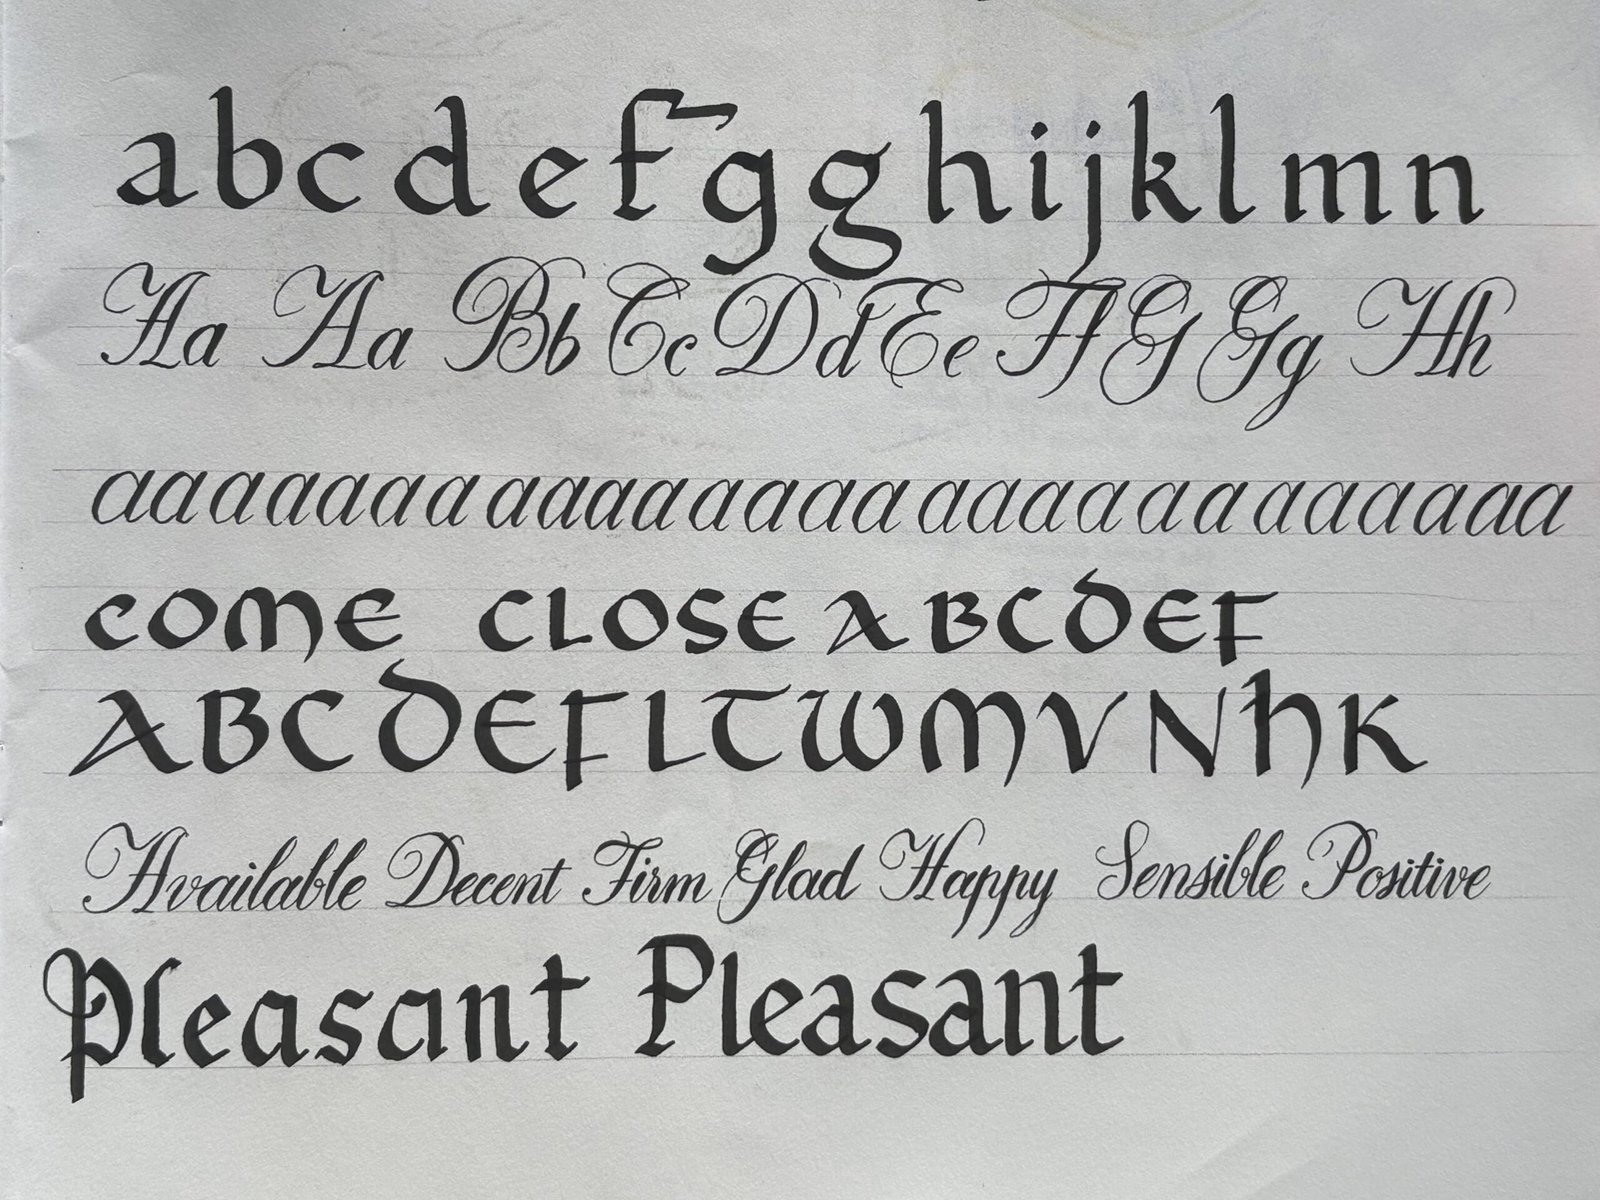 a b c d e f g g h i j k l m n
Aa Aa Bb Cc Dd Ee Ff G Gg Hh
a a a a a a a a a a a a a a a a a a a a a a a a a a a
COME CLOSE A B C D E F
A B C D E F L T W M V N h K
Available Decent Firm Glad Happy Sensible Positive
Pleasant Pleasant